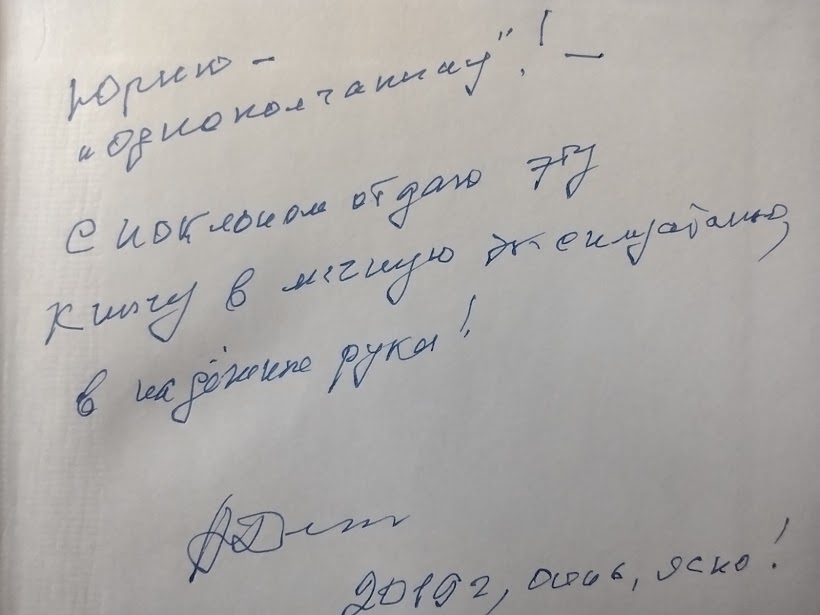 Юрию -
"однополчанину"! -
С поклоном отдаю эту
книгу в личную эксплуатацию,
в надёжные руки!
2019г, осень, ясно!